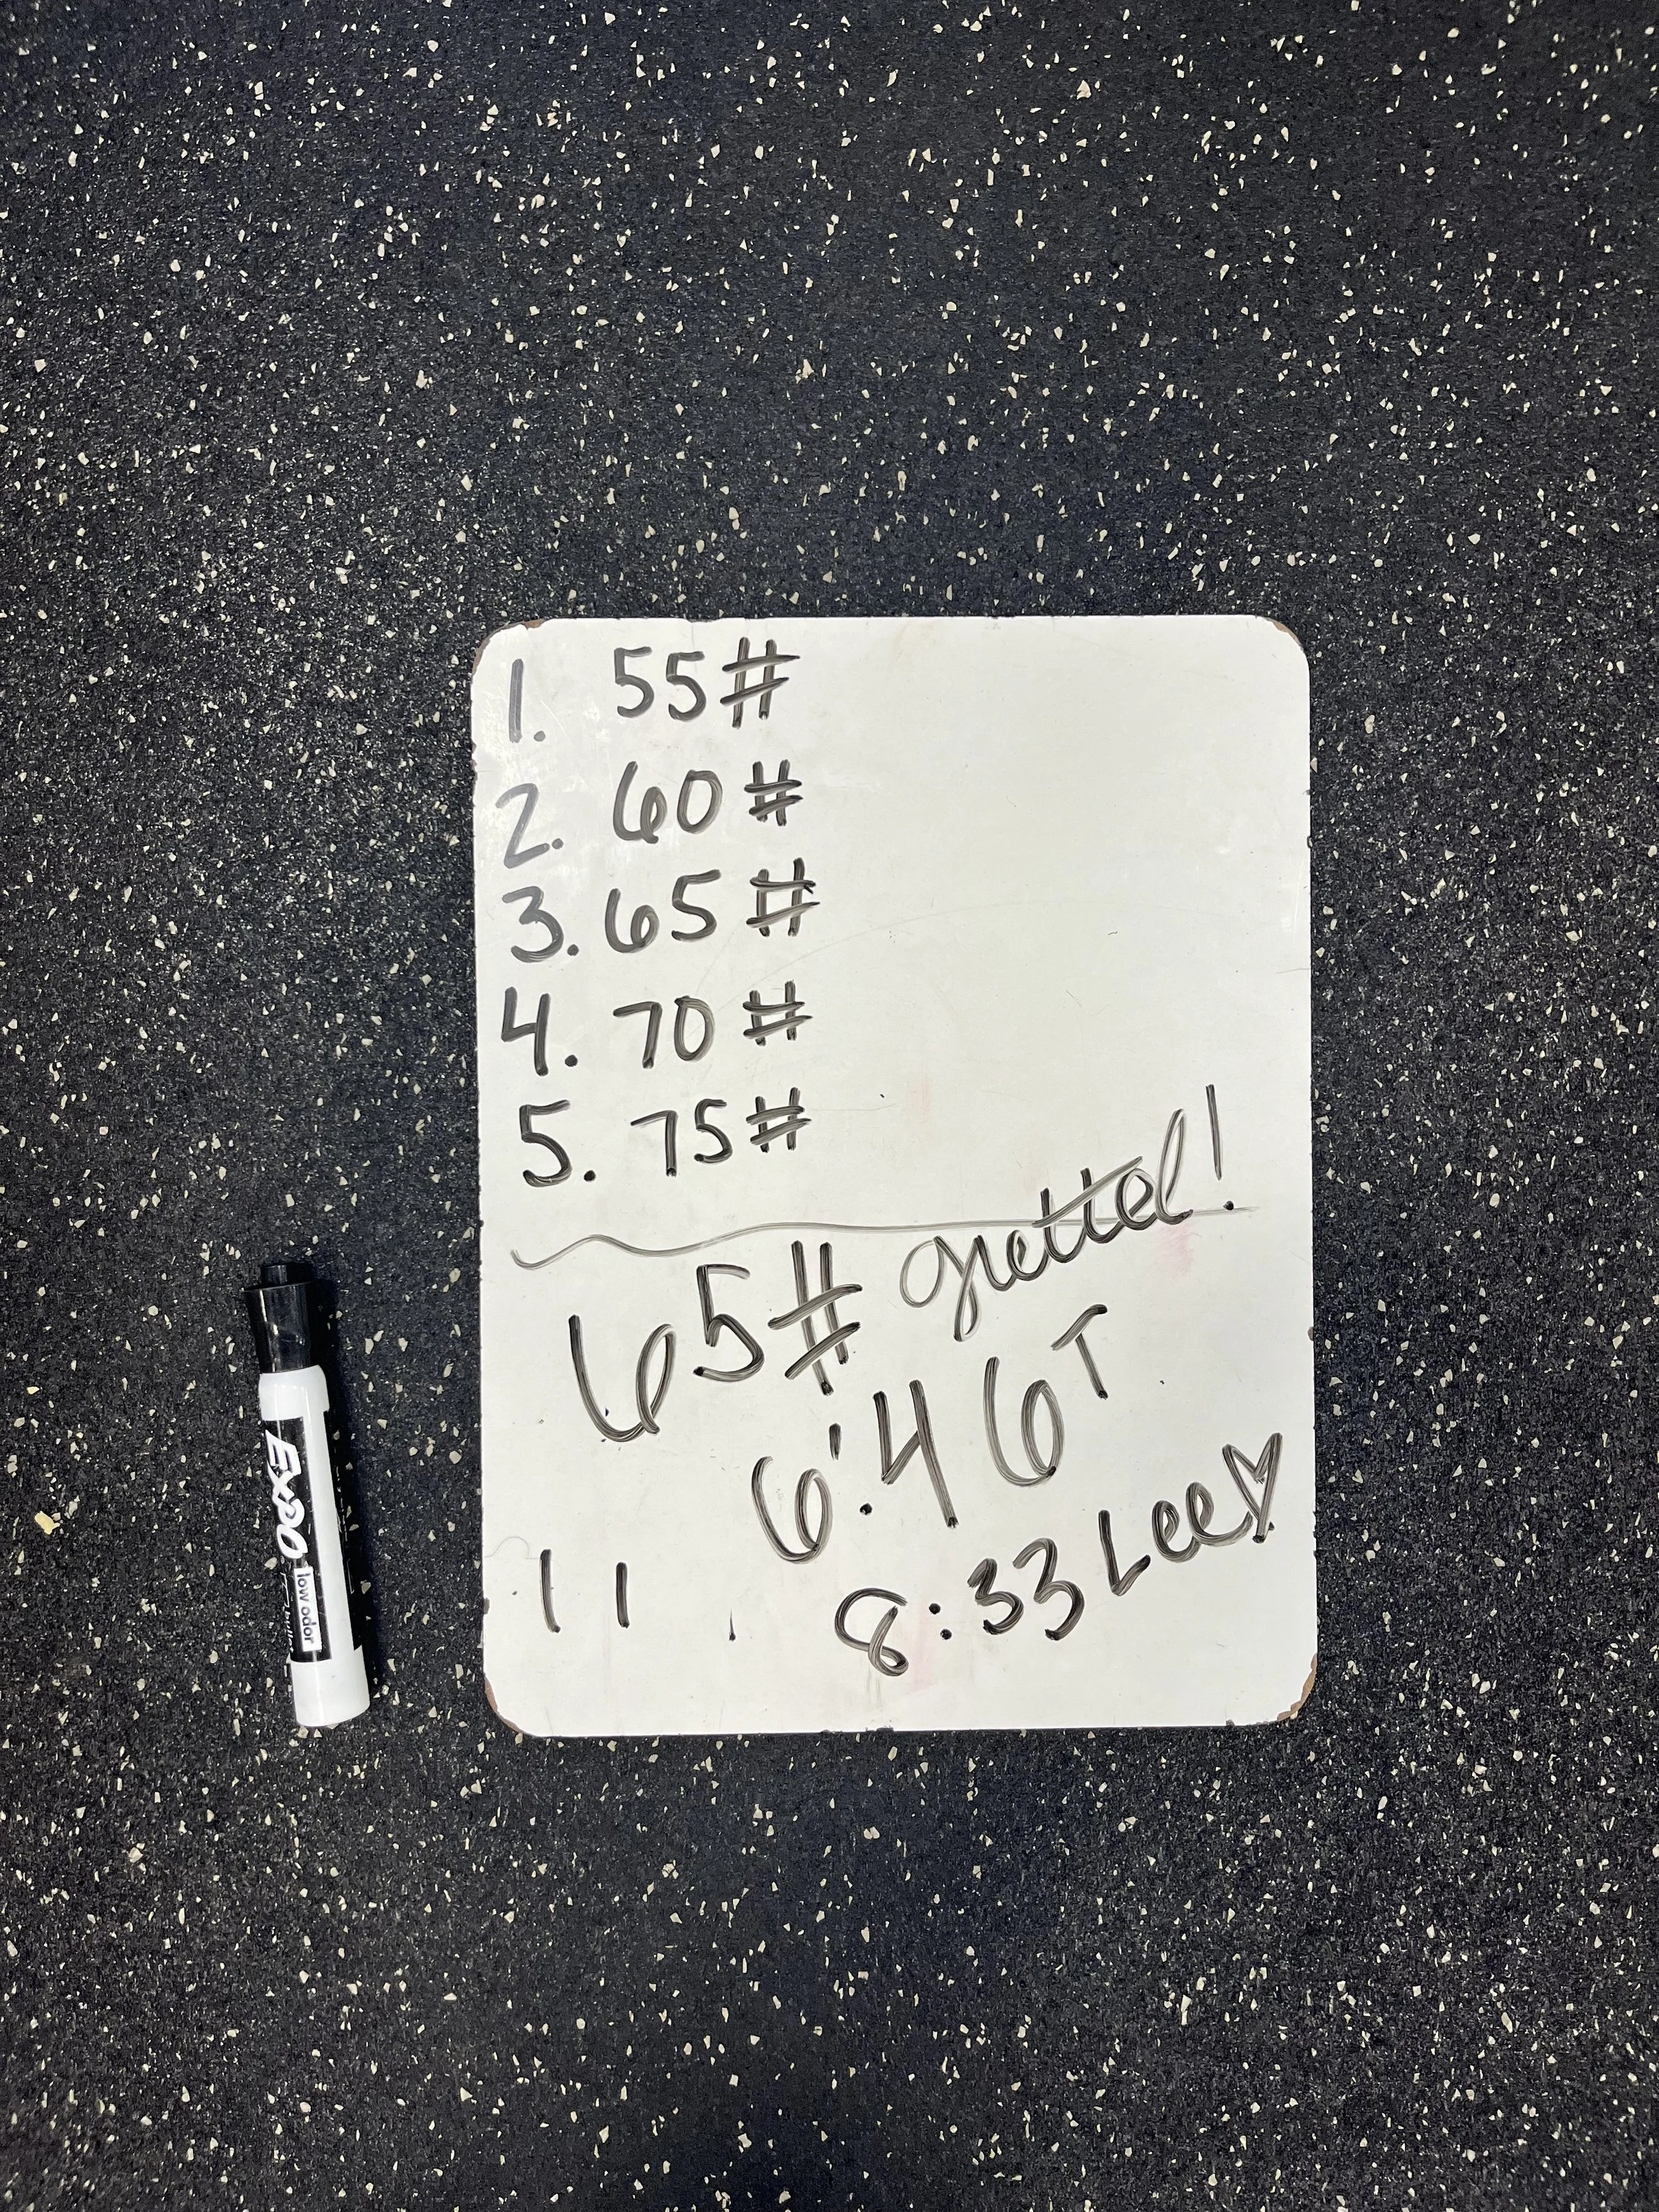 1. 55#
2. 60#
3. 65#
4. 70#
5. 75#
65# Grettel!
6:46 T
8:33 Lee♡
11
EXPO
low odor